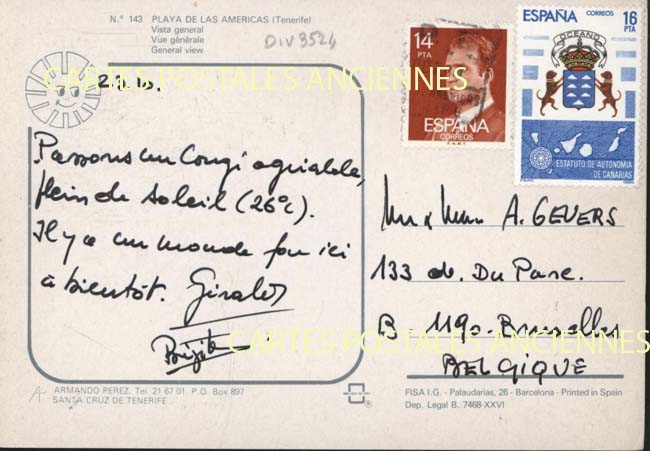 N.º 143 PLAYA DE LAS AMERICAS (Tenerife)
Vista general
Vue générale
General view
DIV 3524
CARTES POSTALES ANCIENNES
Passons un Congé agréable,
plein de soleil (26°c).
Il y a un monde fou ici
à bientôt. Giralds
Brigitte
14
PTA
ESPAÑA
CORREOS
F.N.M.T.
ESPAÑA
CORREOS
16
PTA
OCEANO
ESTATUTO DE AUTONOMIA
DE CANARIAS
A. GEVERS
133 av. Du Parc.
B. 1190 - Bruxelles
BELGIQUE
CARTES POSTALES ANCIENNES
ARMANDO PEREZ. Tel. 21 67 01. P.O. Box 897
SANTA CRUZ DE TENERIFE
FISA I.G. - Palaudarias, 26 - Barcelona - Printed in Spain
Dep. Legal B. 7468-XXVI